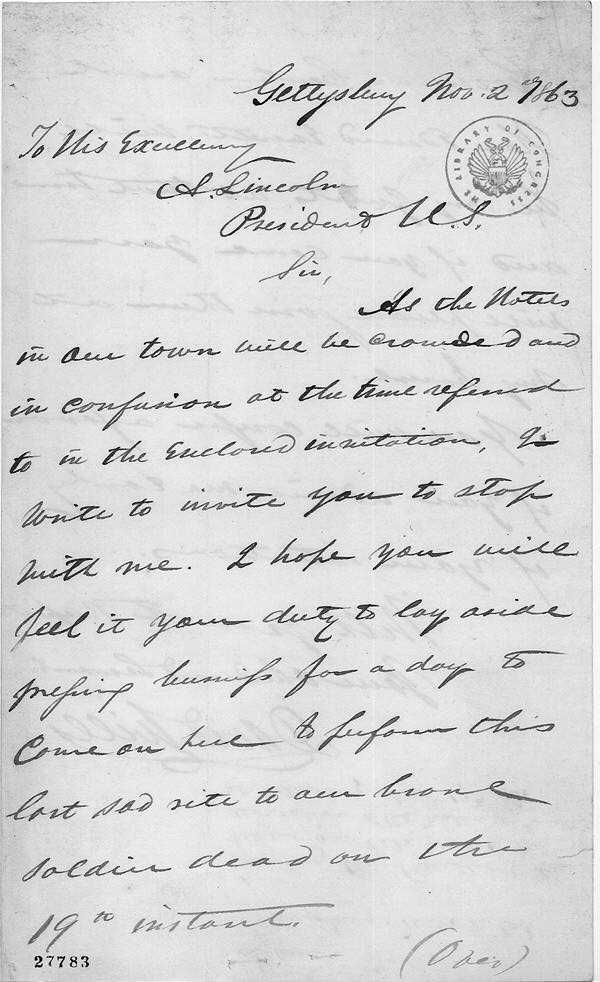 Gettysburg Nov. 2nd 1863
THE LIBRARY OF CONGRESS
To His Excellency
A. Lincoln
President U.S.
Sir,
As the Hotels
in our town will be crowded and
in confusion at the time referred
to in the enclosed invitation, I
write to invite you to stop
with me. I hope you will
feel it your duty to lay aside
pressing business for a day to
come on here to perform this
last sad rite to our brave
soldier dead on the
19th instant.
(Over)
27783